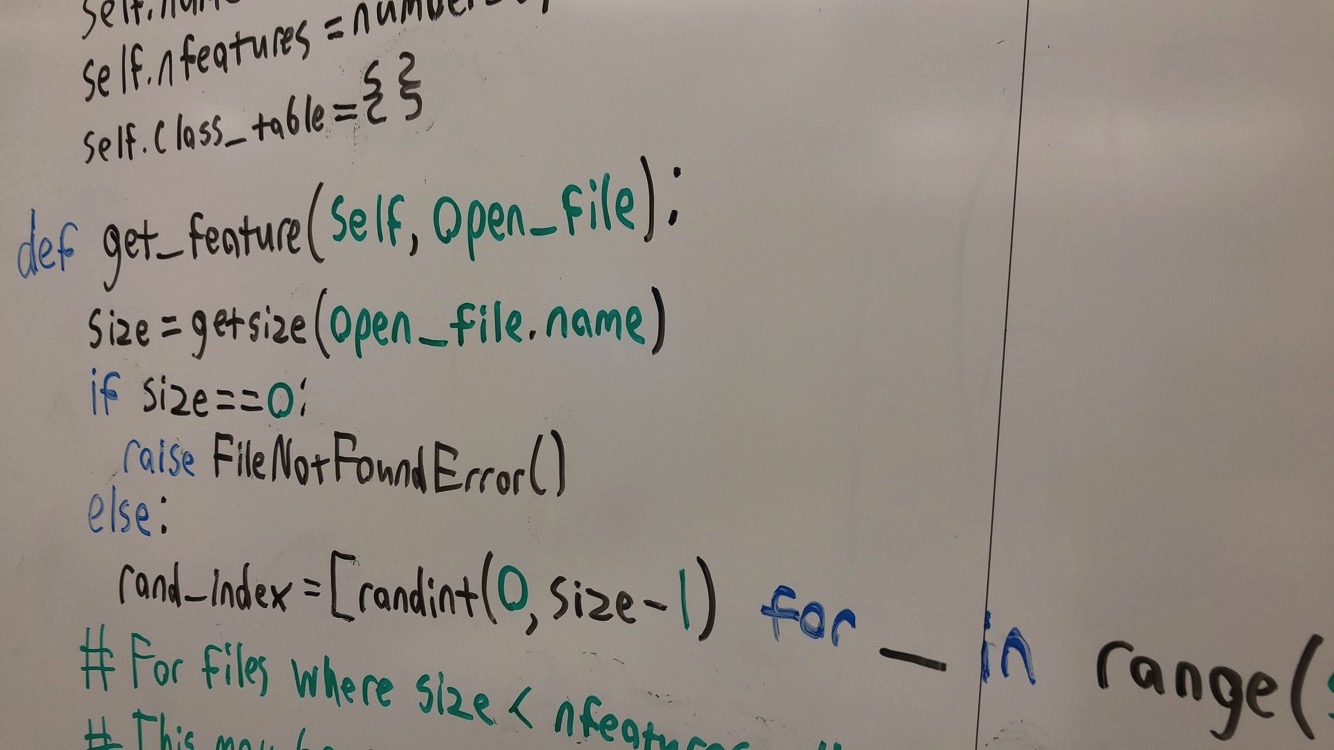 self.nfeatures =
self.class_table={}
def get_feature(self, open_file):
size=getsize(open_file.name)
if size==0:
raise FileNotFoundError()
else:
rand_index=[randint(0,size-1) for _ in range(
# For files where size < nfeatures
# This may